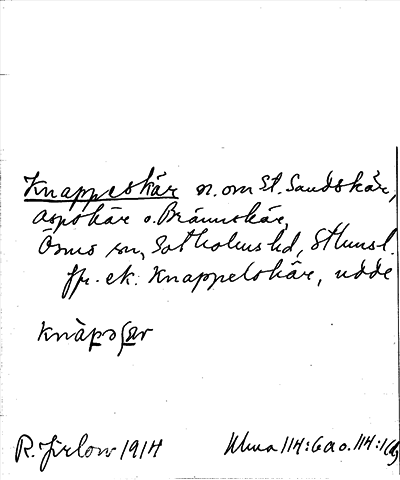 Knappeskär n. om St. Sandskär,
Aspskär o. Brännskär,
Ösmo sn, Sotholms hd, Sthmsl.
fr. ek. Knappelskär, udde
knàpəʃær
R. Jirlow 1914 Ulma 114:6a o. 114:1(6)